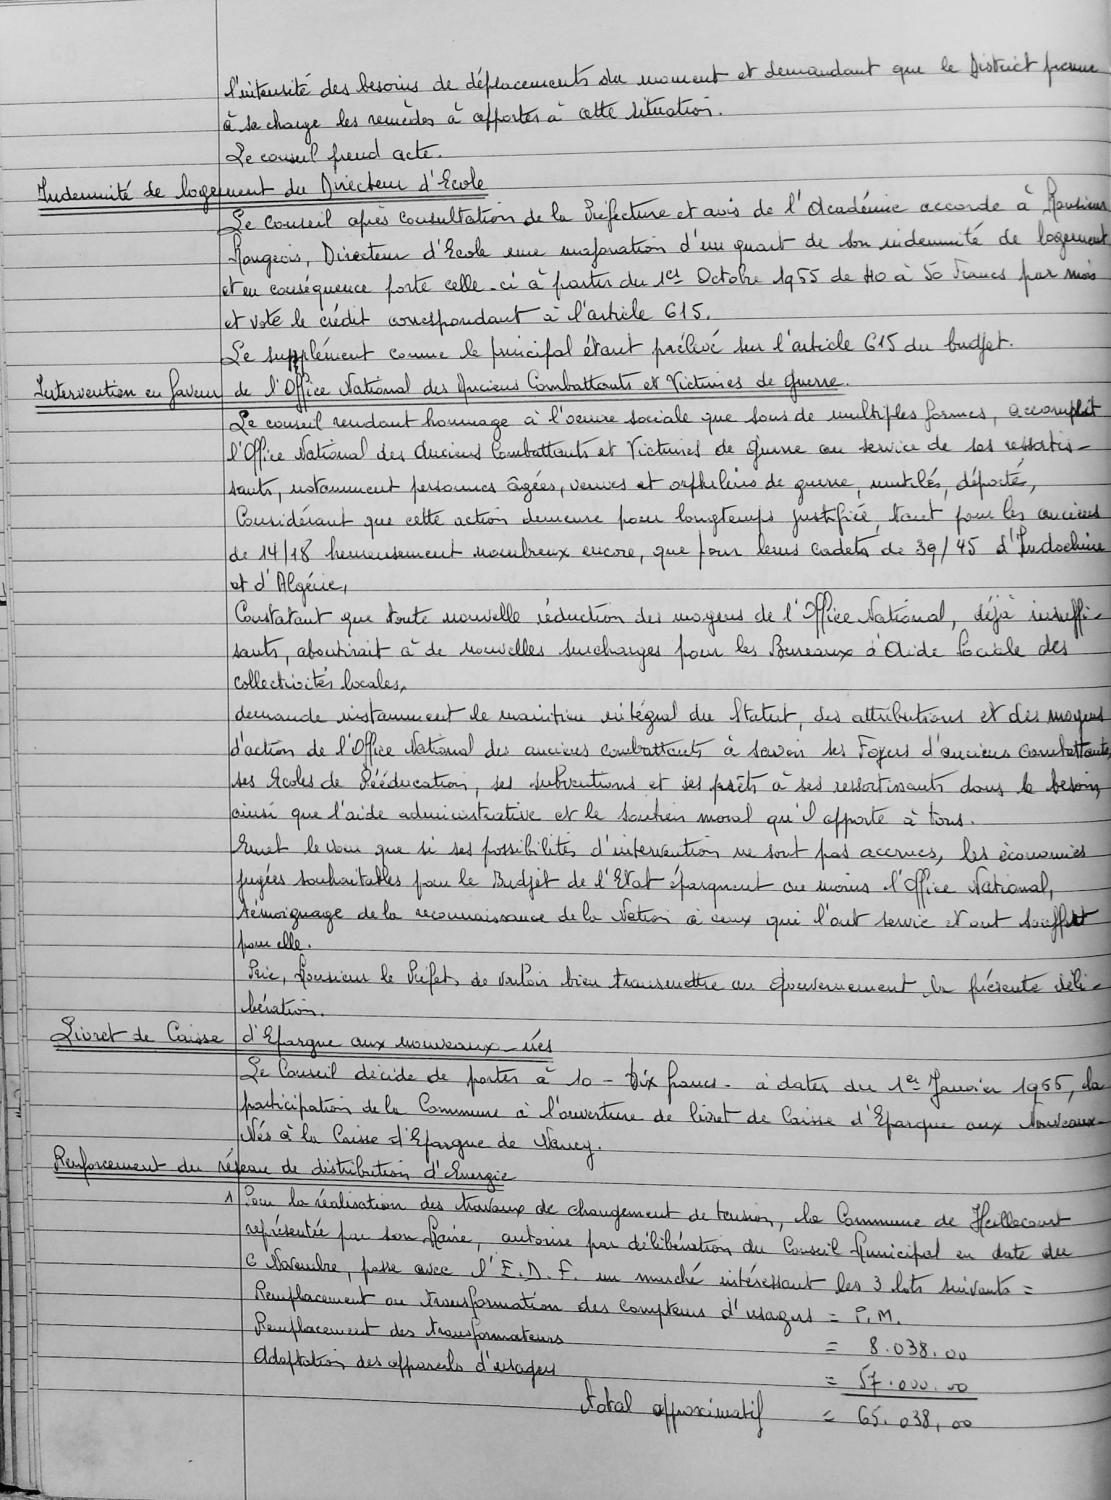 l'intensité des besoins de déplacements du moment et demandant que le District prenne
à sa charge les remèdes à apporter à cette situation.
Le conseil prend acte.
Indemnité de logement du Directeur d'Ecole
Le Conseil après consultation de la Préfecture et avis de l'Académie accorde à Monsieur
Rongeois, Directeur d'Ecole une majoration d'un quart de son indemnité de logement
et en conséquence porte celle-ci à partir du 1er Octobre 1965 de 40 à 50 Francs par mois
et vote le crédit correspondant à l'article 615.
Le supplément comme le principal étant prélevé sur l'article 615 du budget.
Intervention en faveur de l'Office National des Anciens Combattants et Victimes de Guerre.
Le conseil rendant hommage à l'oeuvre sociale que sous de multiples formes, accomplit
l'Office National des Anciens Combattants et Victimes de guerre au service de ses ressortis-
sants, notamment personnes âgées, veuves et orphelins de guerre, mutilés, déporté,
Considérant que cette action demeure pour longtemps justifiée, tant pour les anciens
de 14/18 heureusement nombreux encore, que pour leurs cadets de 39/45 d'Indochine
et d'Algérie,
Constatant que toute nouvelle réduction des moyens de l'Office National, déjà insuffi-
sants, aboutirait à de nouvelles surcharges pour les Bureaux d'Aide Sociale des
collectivités locales,
demande instamment le maintien intégral du Statut, des attributions et des moyens
d'action de l'Office National des anciens combattants à savoir ses Foyers d'anciens Combattants,
ses Ecoles de Rééducation, ses subventions et ses prêts à ses ressortissants dans le besoin,
ainsi que l'aide administrative et le soutien moral qu'il apporte à tous.
Emet le voeu que si ses possibilités d'intervention ne sont pas accrues, les économies
jugées souhaitables pour le Budjet de l'Etat épargnent au moins l'Office National,
témoignage de la reconnaissance de la Nation à ceux qui l'ont servie et ont souffert
pour elle.
Prie, Monsieur le Préfet, de vouloir bien transmettre au Gouvernement la présente déli-
bération.
Livret de Caisse d'Epargne aux nouveaux-nés
Le Conseil décide de porter à 10 - Dix francs - à dater du 1er Janvier 1965, la
participation de la Commune à l'ouverture de livret de Caisse d'Epargne aux Nouveaux-
Nés à la Caisse d'Epargne de Nancy.
Renforcement du réseau de distribution d'Energie
1 Pour la réalisation des travaux de changement de tension, la Commune de Heillecourt
représentée par son Maire, autorisé par délibération du Conseil Municipal en date du
6 Novembre, passe avec l'E.D.F. un marché intéressant les 3 lots suivants =
Remplacement ou transformation des Compteurs d'usagers = P.M.
Remplacement des transformateurs = 8.038,00
Adaptation des appareils d'usagers = 57.000.00
total approximatif = 65.038,00